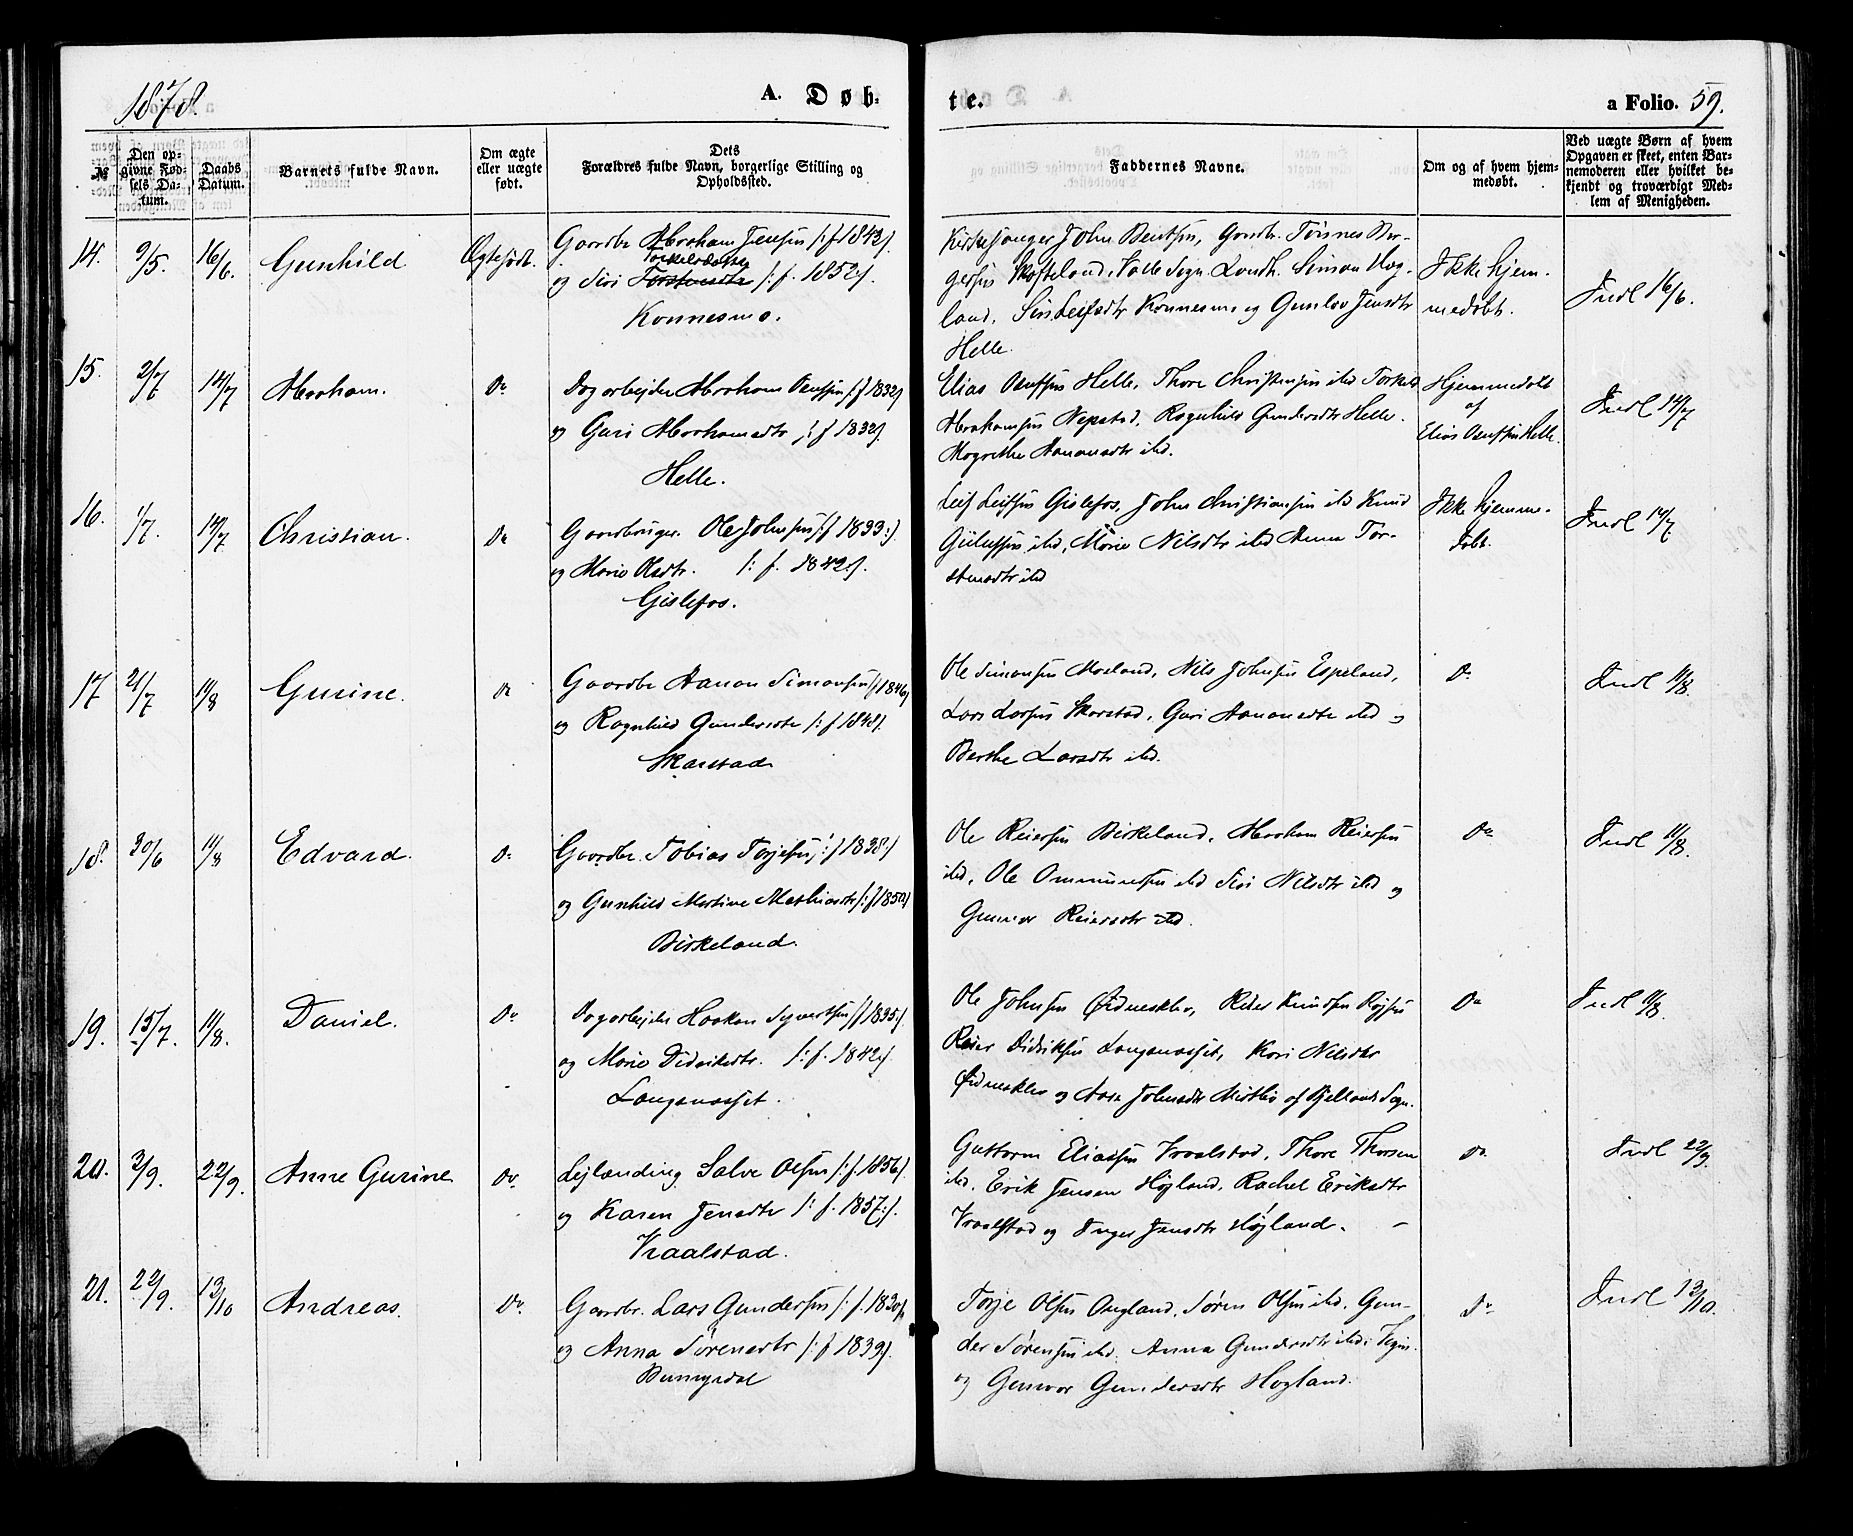 1878.
A. Døb-
te.
a Folio. 59.
№
Den op-
givne Fød-
sels Da-
tum.
Daabs
Datum.
Barnets fulde Navn.
Om ægte
eller uægte
født.
Dets
Forældres fulde Navn, borgerlige Stilling og
Opholdssted.
Faddernes Navne.
Om og af hvem hjem-
medøbt.
Ved uægte Børn af hvem
Opgaven er skeet, enten Bar-
nemoderen eller hvilket be-
kjendt og troværdigt Med-
lem af Menigheden.
14. 9/5. 16/6. Gunhild Ægtefødt.
Gaardbr Abraham Jensen /: f 1842 /.
Torkelsdatter
og Siri Torstensdtr /: f. 1852 /.
Konnesmo.
Kirkesanger John Bentsen, Gaardbr. Tønnes Ber-
gersen Skofteland, Valle Sogn Landh. Simon Aag-
land, Siri Leifsdtr Konnesmo og Gunlov Jensdtr
Helle.
Ikke hjem-
medøbt.
Indl 16/6.
15. 2/7 14/7 Abraham. Do
Dagarbejder Abraham Osufsen /: f 1832 /
og Guri Abrahamsdtr /: f 1832 /.
Helle.
Elias Osufsen Helle, Thore Christensen ibd Torkel
Abrahamsen Nepstad, Ragnhild Gundersdtr Helle.
Magrethe Aanonsdtr ibd.
Hjemmedøbt
af
Elias Osufsen Helle.
Indl 14/7
16. 1/7. 14/7 Christian. Do
Gaardbruger. Ole Johnsen /: f 1833 :/
og Marie Olsdtr. /: f. 1842 /.
Gislefos.
Leif Leifsen Gislefos, John Christiansen ibd Knud
Gislefsen ibd, Marie Nilsdtr ibd Anna Tor-
stensdtr ibd
Ikke hjemme-
døbt.
Indl 14/7.
17 21/7 11/8 Gurine. Do
Gaardbr Aanon Simonsen /: f 1846 /
og Ragnhild Gundersdtr /: f 1848 /.
Skarstad
Ole Simonsen Moeland, Nils Johnsen Espeland,
Lars Larsen Skarstad, Guri Aanonsdtr ibd og
Berthe Larsdtr ibd.
Do
Indl 11/8.
18. 30/6 11/8 Edvard. Do
Gaardbr. Tobias Torjesen /: f 1838 /
og Gunhild Martine Mathiasdtr /: f 1850 /
Birkeland.
Ole Reiersen Birkeland, Abraham Reiersen
ibd, Ole Ommundsen ibd Siri Nilsdtr ibd og
Gunvor Reiersdtr ibd.
Do
Indl 11/8.
19. 15/7. 11/8. Daniel. Do
Dagarbejder Haakon Syvertsen /: f 1835 /.
og Marie Didriksdtr. /: f. 1842 /.
Langanasset.
Ole Johnsen Øidnesklev, Reier Knudsen
Reier Didriksen Langanasset, Kari Nilsdtr
Øidnesklev og Aase Johnsdtr af Bjelland Sogn.
Do
Indl 11/8.
20. 3/9. 22/9. Anne Gurine Do
Lejlænding Salve Olsen /: f. 1856 /.
og Karen Jensdtr /: f. 1857 :/.
Vraalstad.
Guttorm Eliassen Vraalstad, Thore Thorsen
ibd. Erik Jensen Høyland, Rachel Eriksdtr
Vraalstad og Inger Jensdtr Høyland.
Do
Indl 22/9.
21. 22/9. 13/10 Andreas. Do
Gaardbr. Lars Gundersen /: f. 1830 /
og Anna Sørensdtr /: f 1839 /.
Torje Olsen Augland, Søren Olsen ibd, Gun-
der Sørensen ibd. Anna Gundersdtr ibd
og Gunvor Gundersdtr Høgland.
Do
Indl 13/10.